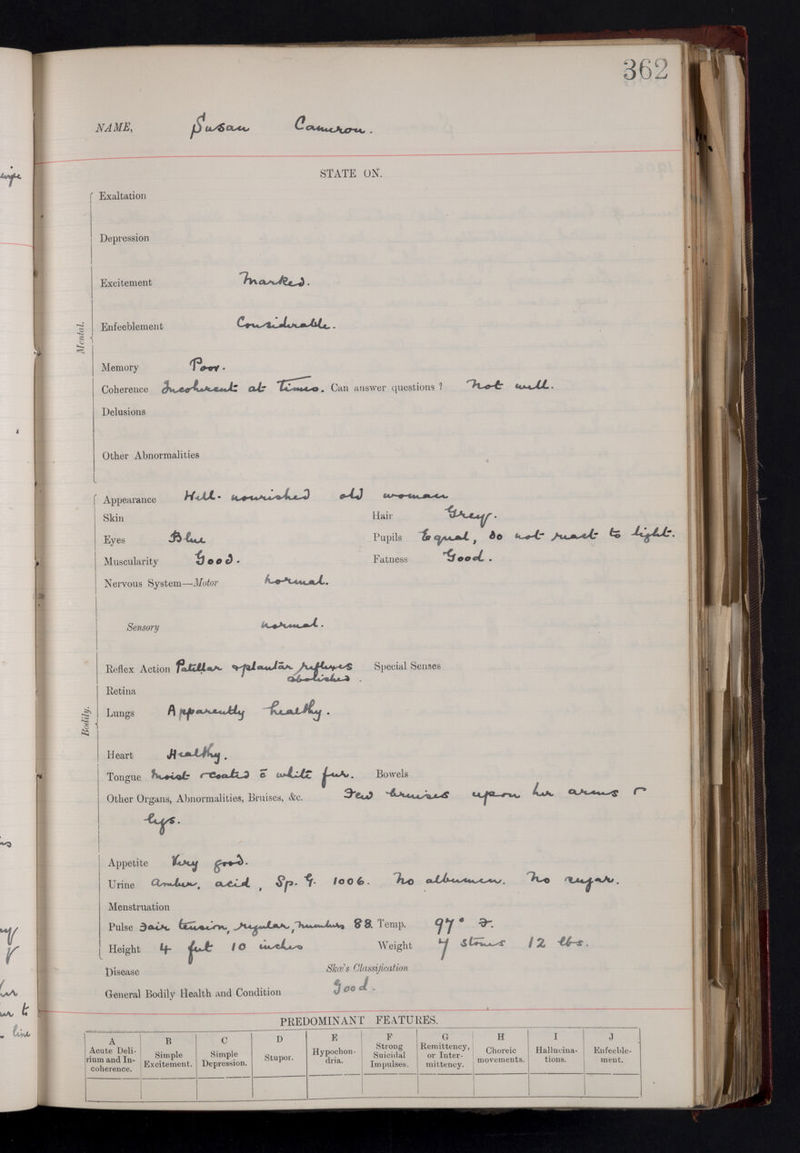 362
NAME, Susan Cameron.
STATE ON.
Mental.
Exaltation
Depression
Excitement Marked.
Enfeeblement Considerable.
Memory Poor.
Coherence Incoherent at times. Can answer questions ? Not well.
Delusions
Other Abnormalities
Bodily.
Appearance Well-nourished old woman
Skin Hair Grey.
Eyes Blue Pupils Equal, do not react to light.
Muscularity Good. Fatness Good.
Nervous System—Motor Normal.
Sensory Normal.
Reflex Action Patellar & plantar reflexes Special Senses
abolished.
Retina
Lungs Apparently healthy.
Heart Healthy.
Tongue Moist & coated c̄ white fur. Bowels
Other Organs, Abnormalities, Bruises, &c. Few bruises upon her arms &
legs.
Appetite Very good.
Urine Amber, acid, Sp. G. 1006. No albumen. No sugar.
Menstruation
Pulse Fair tension, regular, numbers 88. Temp. 97° F.
Height 4 feet 10 inches Weight 7 stones 12 lbs.
Disease Skae's Classification
General Bodily Health and Condition Good.
PREDOMINANT FEATURES.
A B C D E F G H I J
Acute Delirium and Incoherence. Simple Excitement. Simple Depression. Stupor. Hypochondria. Strong Suicidal Impulses. Remittency, or Intermittency. Choreic movements. Hallucinations. Enfeeblement.